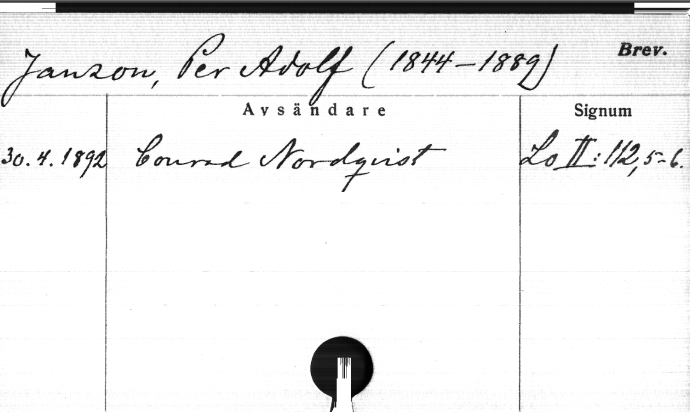 Janzon, Per Adolf (1844-1889) Brev.
Avsändare Signum
30.4.1892 Conrad Nordqvist Lo II:112,5-6.